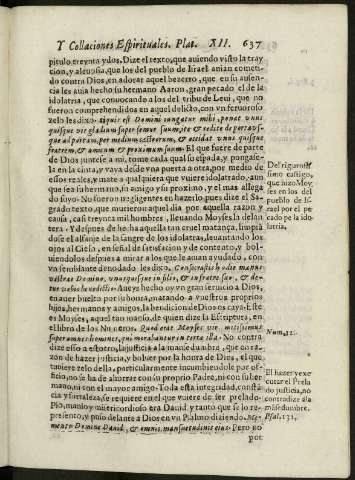 Y Collaciones Espirituales. Plat. XII. 637
pitulo treynta y dos. Dize el texto, que auiendo visto la tray
cion, y aleuosia, que los del pueblo de Israel auian cometi-
do contra Dios, en adorar aquel bezerro, que en su ausen-
cia les auia hecho su hermano Aaron, gran pecado el de la
idolatria, que conuocando a los del tribu de Leui, que no
fueron comprehendidos en aquel delicto, con vn feruoroso
zelo les dixo. Siquis est Domini iungatur mihi, ponat vnus
quisque vir gladium super femur suum, ite & redite de porta vs-
que ad portam, per medium castrorum, & occidat vnusquisque
fratrem, & amicum & proximum suum. El que fuere de parte
de Dios juntese a mi, tome cada qual su espada, y pongase-
la en la cinta, y vaya desde vna puerta a otra, por medio de
essos reales, y mate a qualquiera que vuiere idolatrado, aun
que sea su hermano, su amigo y su proximo, y el mas allega
do suyo. No fueron nigligentes en hazerlo, pues dize el Sa-
grado texto, que murieron aquel dia por aquella razon y
causa, casi treynta mil hombres, lleuando Moyses la delan
tera. Y despues de hecha aquella tan cruel matança, limpiã
dose el alfanje de la sangre de los idolatras, leuantando los
ojos al Cielo, en señal de satisfacion y de contento, y bol-
uiendolos despues a mirar a los que le auian ayudado, con
vn semblante denodado les dixo. Consecrastis hodie manus
vestras Domino, vnusquisque in filio, & in fratre suo, & de-
tur vobis benedictio. Aueys hecho oy vn gran seruicio a Dios,
en auer buelto por su honra, matando a vuestros proprios
hijos, hermanos y amigos, la bendicion de Dios os cayga. Este
es Moyses, aquel tan manso, de quien dize la Escriptura, en
el libro de los Numeros. Quod erat Moyses vir mitissimus
super omnes homines, qui morabantur in terra illa. No contra
dize esso a essotro, la justicia a la mansedumbre, que en ra-
zon de hazer justicia, y boluer por la honra de Dios, el que
tuuiere zelo della, particularmente incumbiendole por of-
ficio, no se ha de ahorrar con su proprio Padre, ni con su her
mano, ni con el mayor amigo. Toda esta integridad, constã
cia y fortaleza, se requiere en el que vuiere de ser prelado.
Pio, manso y misericordioso era Dauid y tanto que se lo re-
presento, y puso delante a Dios en vn Psalmo diziendo. Me-
mento Domine Dauid, & omnis mansuetudinis eius. Pero no
por
Del riguroso
simo castigo,
que hizo Moy
ses en los del
pueblo de Is-
rael por el pe
cado de la ido
latria.
Num. 12.
El hazer y exe
cutar el Prela
do justicia, no
contradize a la
mãsedumbre.
Psal. 131.